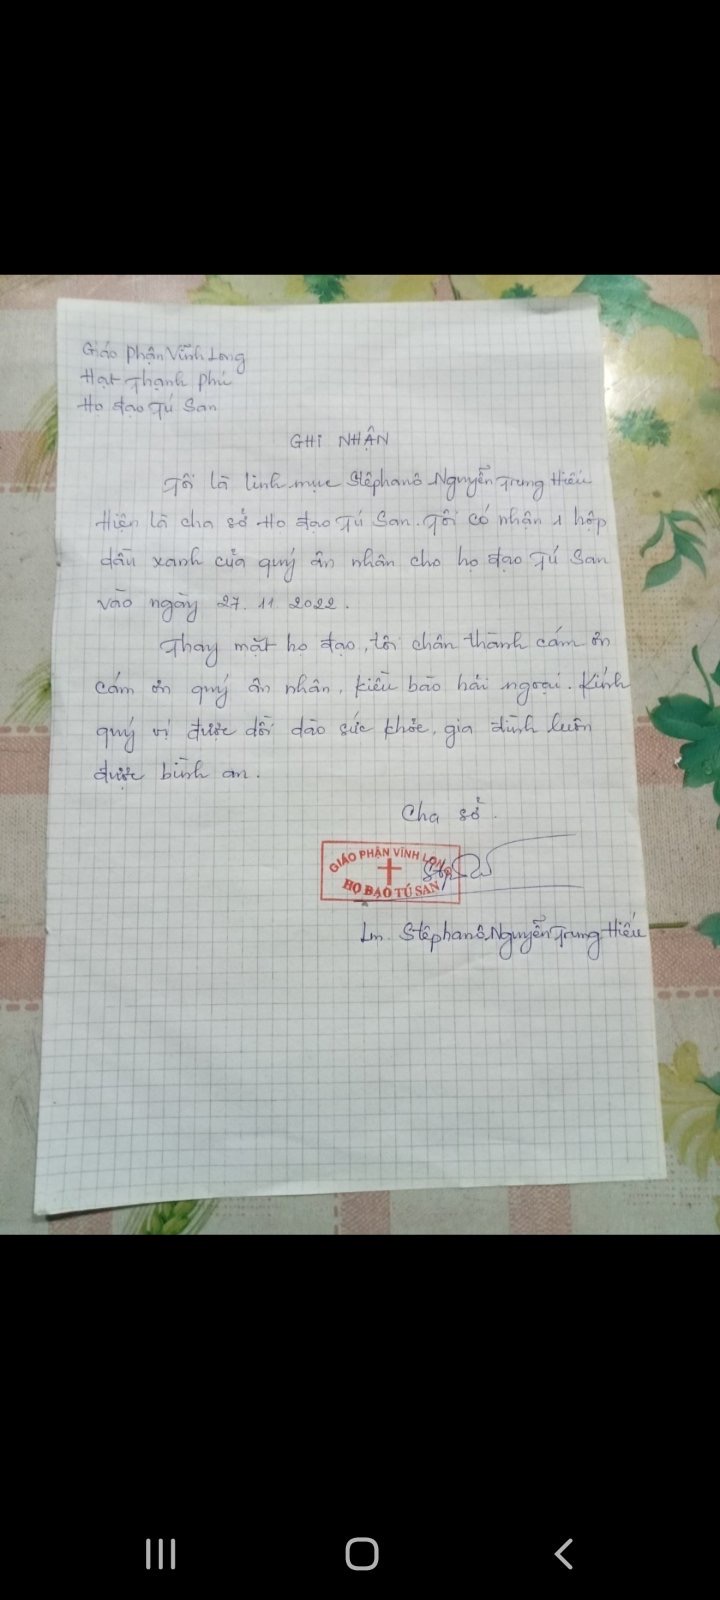 Giáo phận Vĩnh Long
Hạt Thạnh Phú
Họ đạo Tú San
GHI NHẬN
Tôi là linh mục Stêphanô Nguyễn Trung Hiếu
Hiện là cha sở Họ đạo Tú San. Tôi có nhận 1 hộp
dầu xanh của quý ân nhân cho họ đạo Tú San
vào ngày 27.11.2022.
Thay mặt họ đạo, tôi chân thành cám ơn
cám ơn quý ân nhân, kiều bào hải ngoại. Kính
quý vị được dồi dào sức khỏe, gia đình luôn
được bình an.
Cha sở.
GIÁO PHẬN VĨNH LONG
HỌ ĐẠO TÚ SAN
Lm. Stêphanô Nguyễn Trung Hiếu